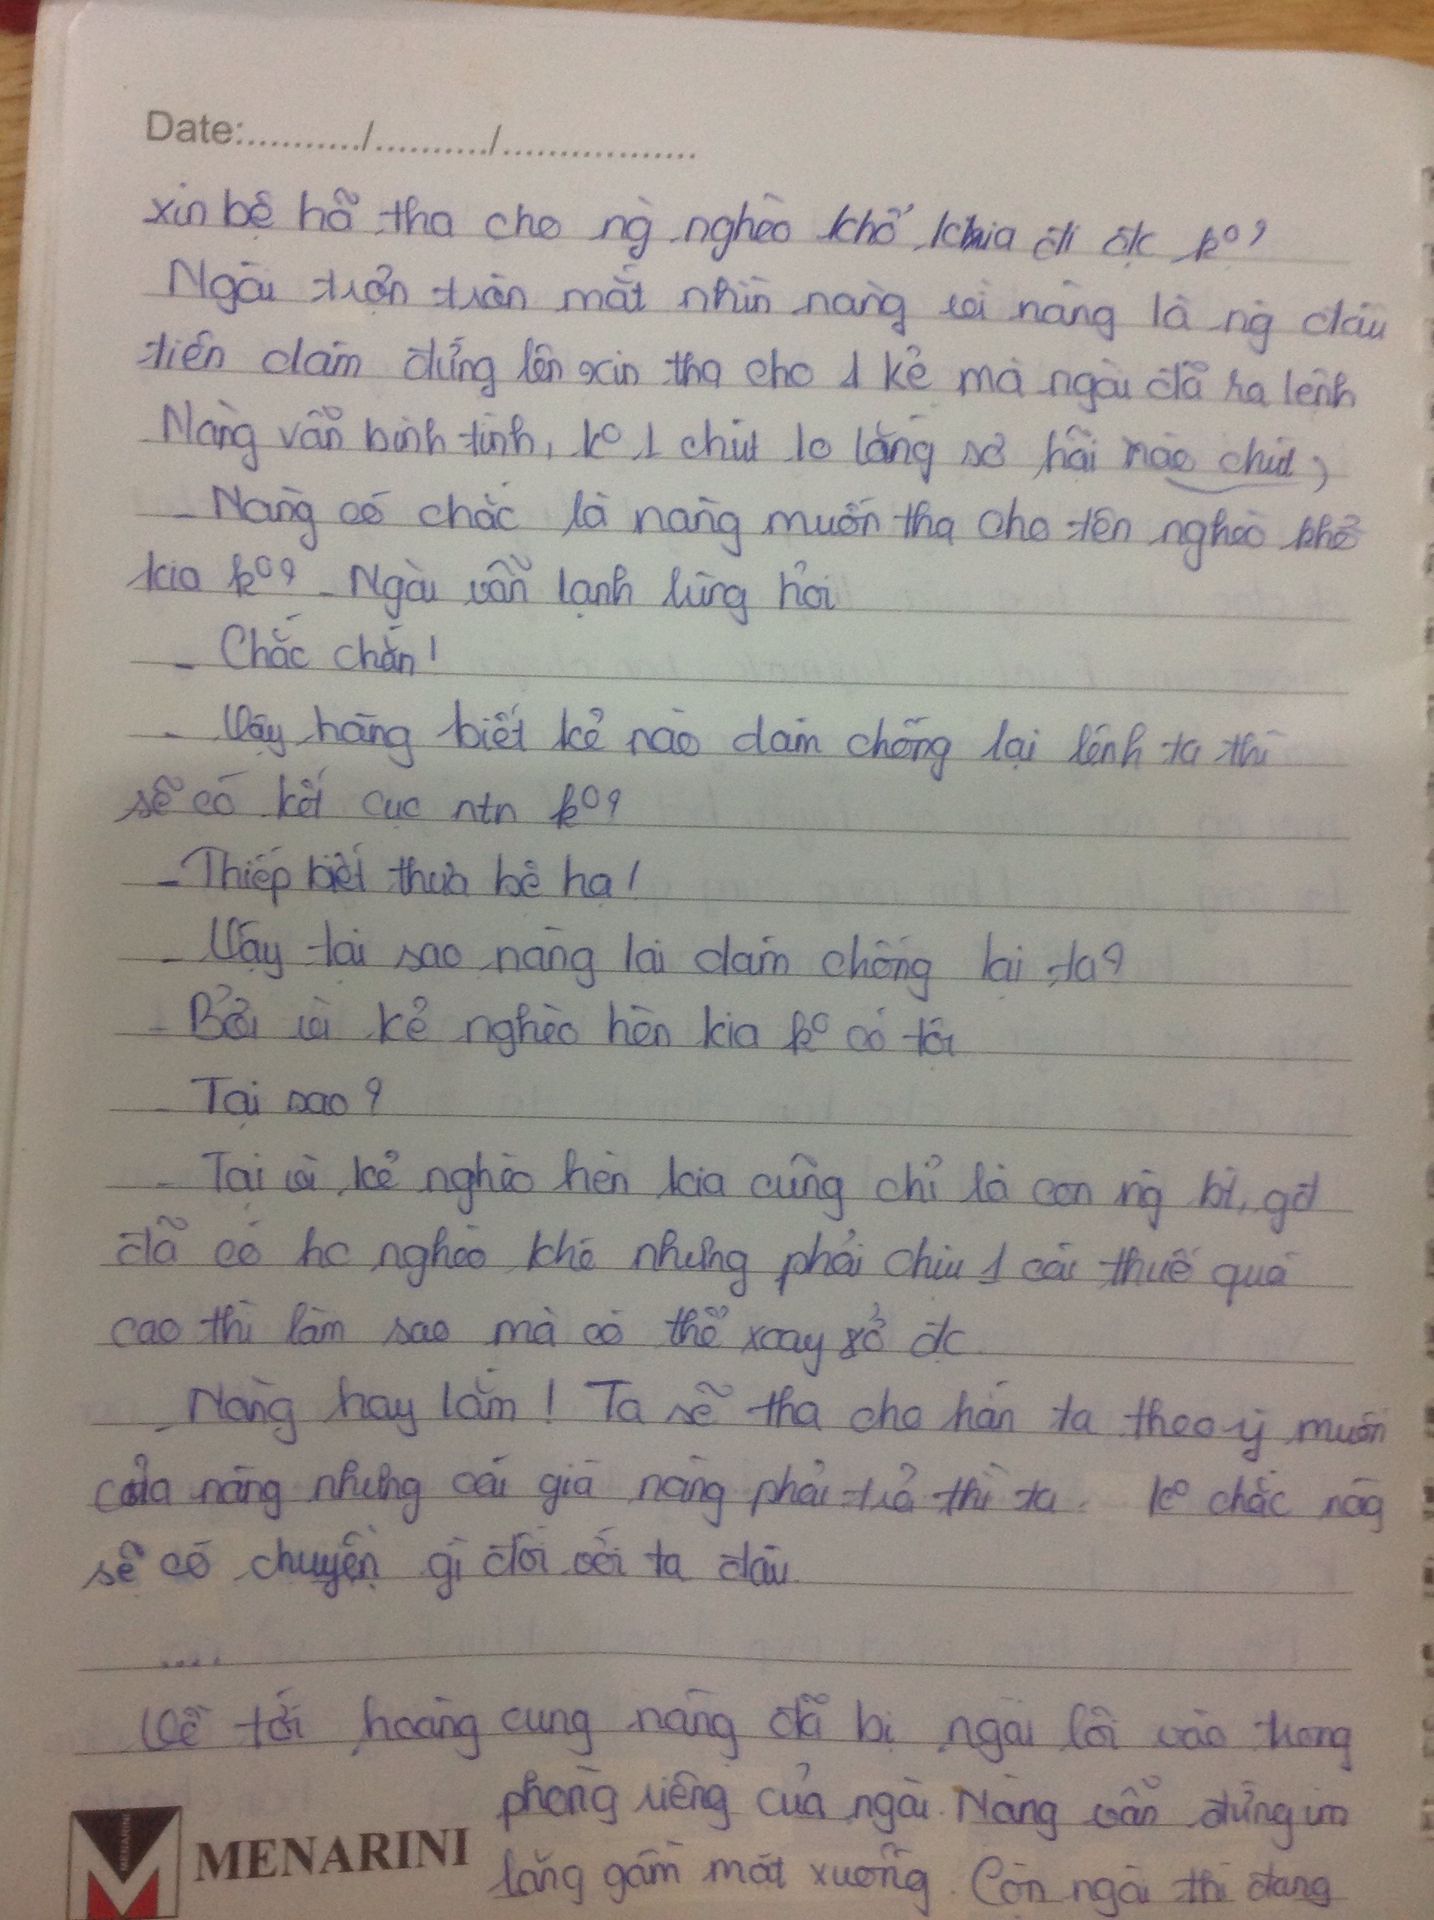 Date:.........../.........../.................
xin bệ hỗ tha cho ng̀ nghèo khổ khia đi đc k⁰?
Ngài trợn tròn mắt nhìn nàng vì nàng là ng̀ đâu
tiên dám đứng lên xin tha cho 1 kẻ mà ngài đã ra lệnh
Nàng vẫn bình tĩnh, k⁰ 1 chút lo lắng sợ hãi nào chút,
- Nàng có chắc là nàng muốn tha cho tên nghèo khổ
kia k⁰? - Ngài vẫn lạnh lùng hỏi
- Chắc chắn!
- Vậy hàng biết kẻ nào dám chống lại lệnh ta thì
sẽ có kết cục ntn k⁰?
- Thiếp biết thưa bệ hạ!
- Vậy tại sao nàng lại dám chống lại ta?
- Bởi vì kẻ nghèo hèn kia k⁰ có tội
- Tại sao?
- Tại vì kẻ nghèo hèn kia cũng chỉ là con ng̀ bt, gđ
đã có hc nghèo khó nhưng phải chịu 1 cái thuế quá
cao thì làm sao mà có thể xoay sở đc
- Nàng hay lắm! Ta sẽ tha cho hắn ta theo ý muốn
của nàng nhưng cái giá nàng phải trả thì ta k⁰ chắc nàg
sẽ có chuyện gì đối với ta đâu
....
Về tới hoàng cung nàng đã bị ngài lôi vào trong
phòng riêng của ngài. Nàng vẫn đứng im
lặng gầm mặt xuống. Còn ngài thì đang
MENARINI